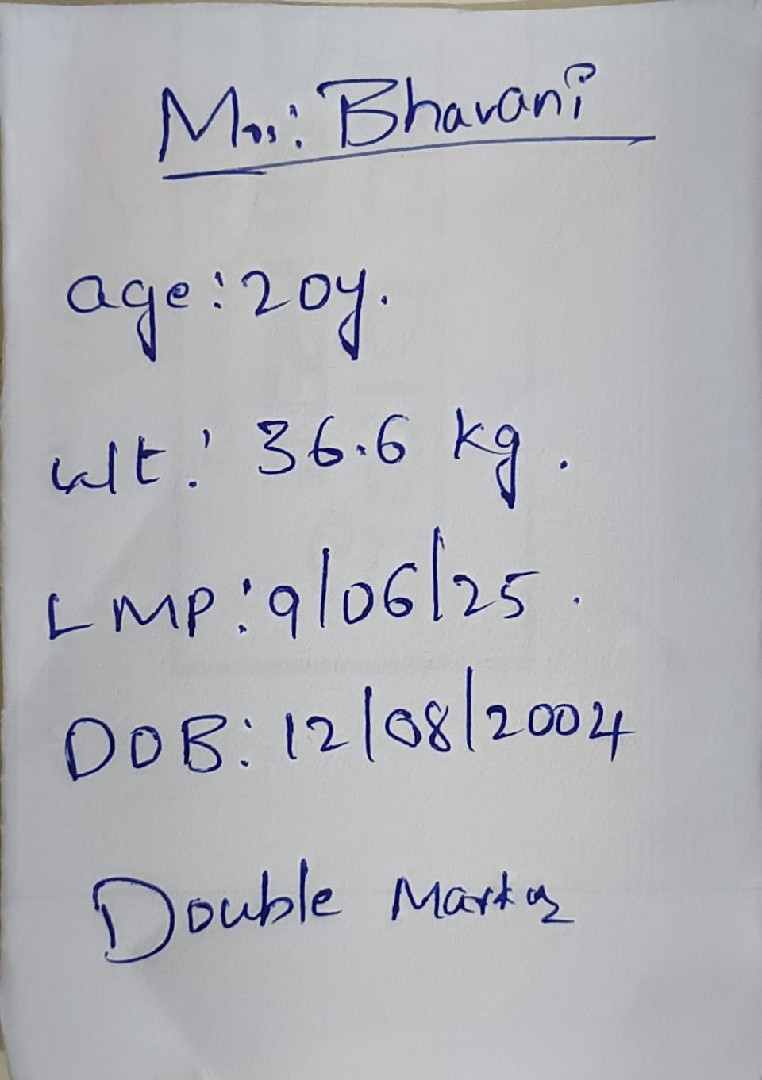 Mrs: Bhavani
age: 20y.
wt: 36.6 kg.
LMP: 9/06/25.
DOB: 12/08/2004
Double Marker